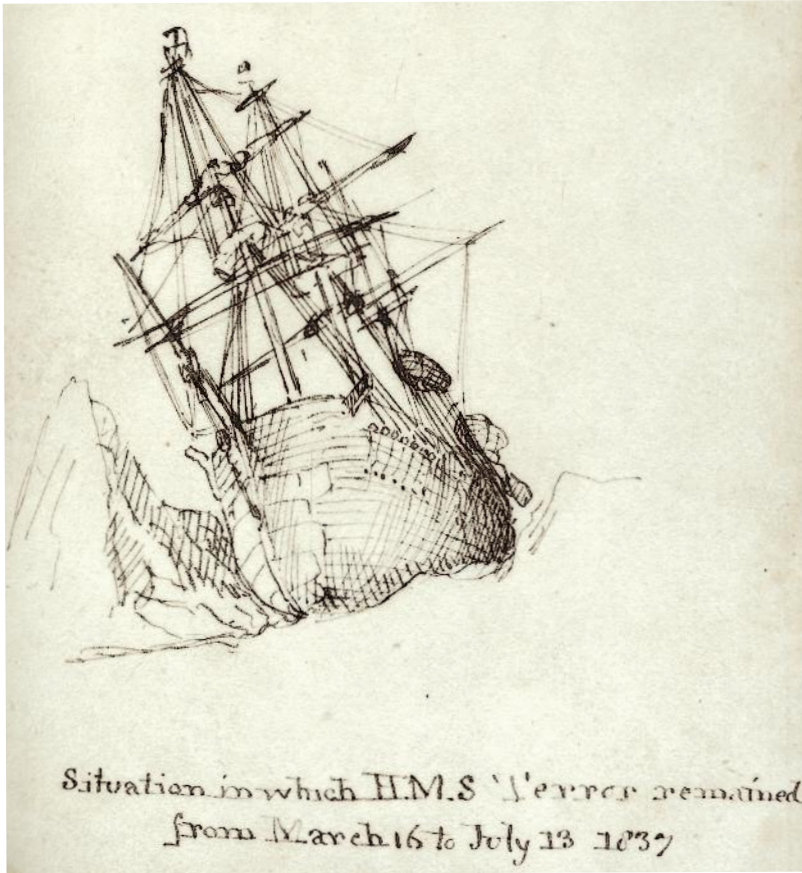 Situation in which H.M.S Terror remained
from March 16 to July 13 1837